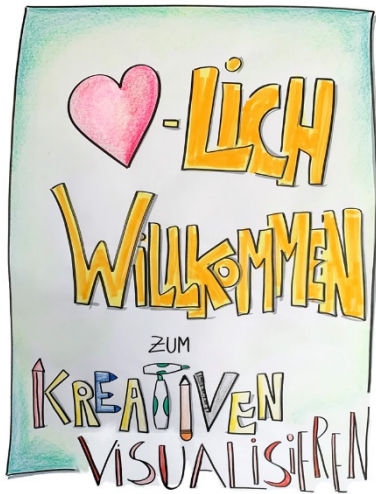 -LiCH
WiLLKOMMEN
ZUM
KREATIVEN
ViSUALiSiEREN